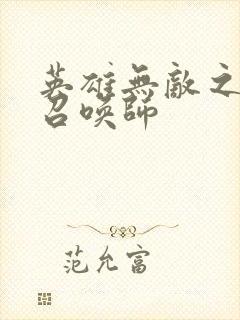 英雄無敵之
召喚師
范允富